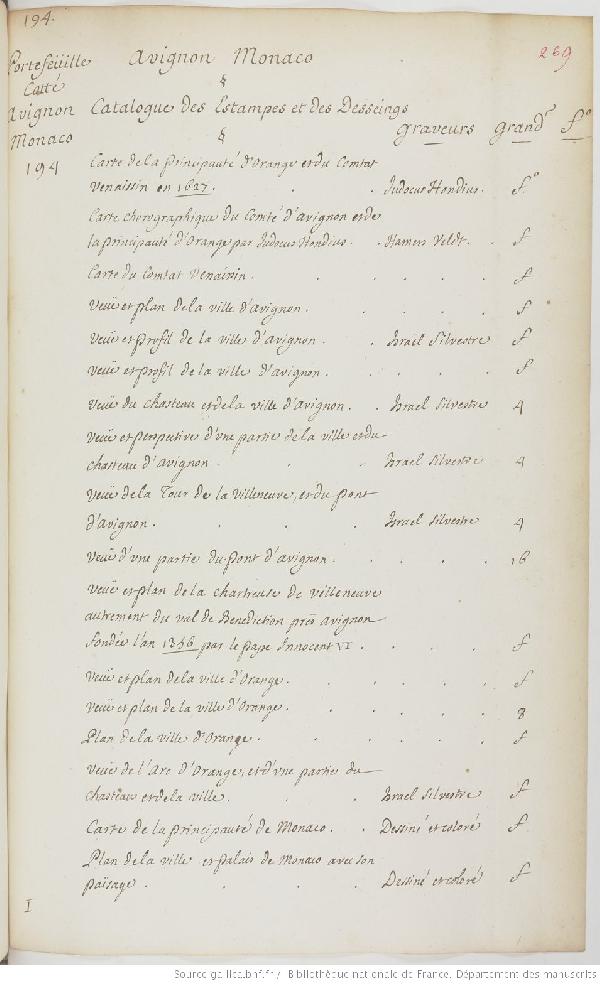 194.
269
Portefeüille
Catté
Avignon
Monaco
194
Avignon Monaco
§
Catalogue des Estampes et des Desseings
§
graveurs grandr fo
Carte de la principauté d'Orange et du Comtat
Venaissin en 1627. Judocus Hondius. fo
Carte chorographique du Comté d'Avignon et de
la principauté d'Orange par Judocus Hondius. Hamers Veldt. f
Carte du Comtat Venaisin. f
Veüe et plan de la ville d'Avignon. f
Veüe et profil de la ville d'Avignon. Israël Silvestre f
Veüe et profil de la ville d'Avignon. f
Veüe du chasteau et de la ville d'Avignon. Israel Silvestre 4
Veüe et perspective d'vne partie de la ville et du
chasteau d'Avignon. Israel Silvestre 4
Veüe de la Tour de la Villeneuve, et du pont
d'Avignon. Israel Silvestre 4
Veüe d'vne partie du pont d'Avignon. 16
Veüe et plan de la chartreuse de Villeneuve
autrement du val de Benediction près Avignon
fondée l'an 1356 par le pape Innocent VI. f
Veüe et plan de la ville d'Orange. f
Veüe et plan de la ville d'Orange. 8
Plan de la ville d'Orange. f
Veüe de l'Arc d'Orange, et d'vne partie du
chasteau et de la ville. Israel Silvestre f
Carte de la principauté de Monaco. Dessiné et coloré f
Plan de la ville et palais de Monaco avec son
païsage. Dessiné et coloré f
I
Source gallica.bnf.fr / Bibliothèque nationale de France. Département des manuscrits